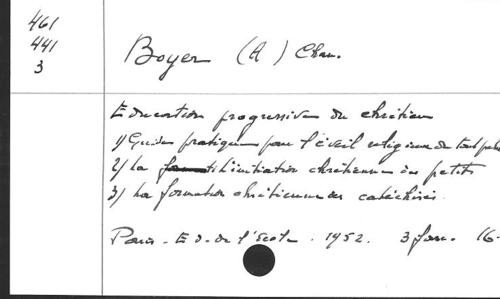 461
441
3
Boyer (A) Chan.
Education progressive du chrétien
1) Guide pratique pour l'éveil religieux de tout petits
2) La initiation chrétienne des petits
3) La formation chrétienne des catéchisés.
Paris - Ed. de l'Ecole. 1952. 3 fasc. 16-